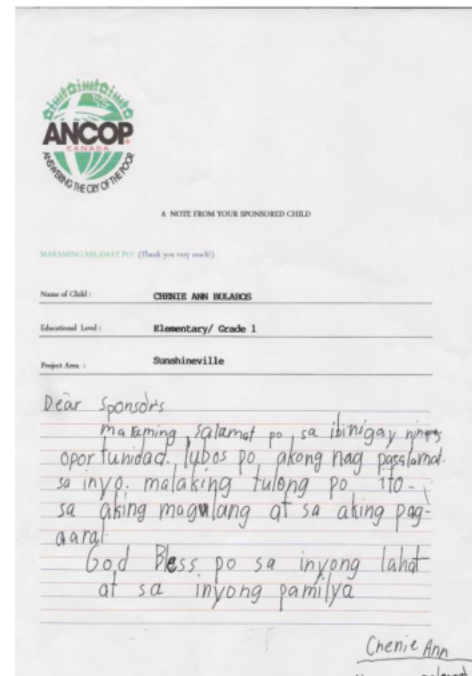 ANCOP
CANADA
ANSWERING THE CRY OF THE POOR
A NOTE FROM YOUR SPONSORED CHILD
MARAMING SALAMAT PO! (Thank you very much!)
Name of Child : CHENIE ANN BULABOS
Educational Level : Elementary/ Grade 1
Project Area : Sunshineville
Dear Sponsors
maraming salamat po sa ibinigay ninyong
oportunidad. lubos po akong nag pasalamat.
sa inyo. malaking tulong po ito-
sa aking magulang at sa aking pag-
aaral
God Bless po sa inyong lahat
at sa inyong pamilya
Chenie Ann